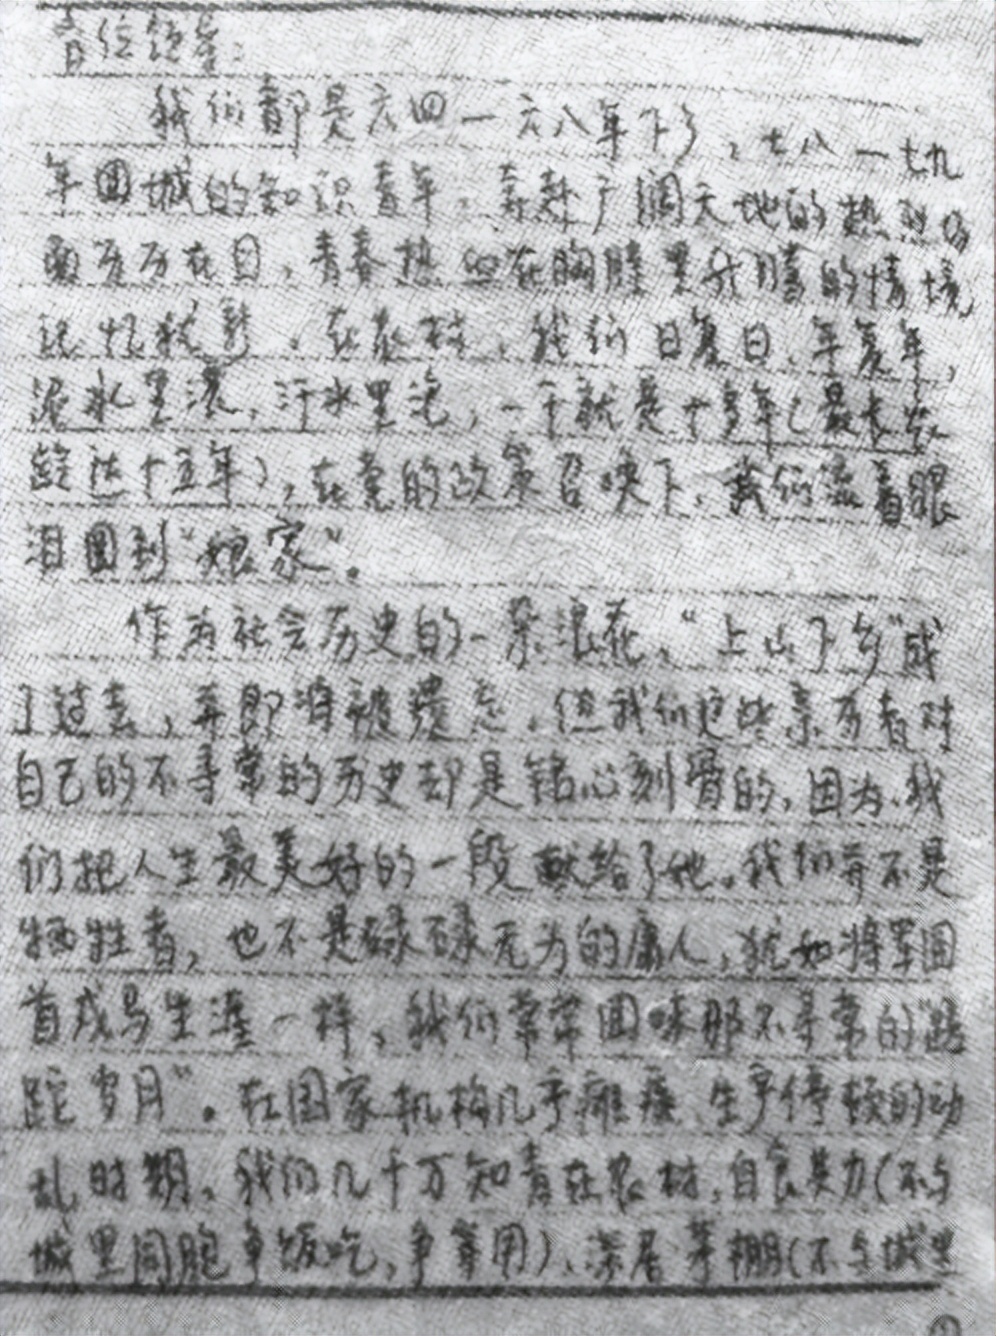 各位领导:
我们都是六四一六八年下乡,七八一七九
年回城的知识青年。奔赴广阔天地的热烈场
面历历在目,青春热血在胸膛里沸腾的情境
记忆犹新。在农村,我们日复日、年复年,
泥水里滚,汗水里泡,一干就是十多年(最长农
龄达十五年),在党的政策召唤下,我们流着眼
泪回到“娘家”。
作为社会历史的一朵浪花,“上山下乡”成
了过去,并即将被遗忘。但我们这些亲历者对
自己的不寻常的历史却是铭心刻骨的,因为,我
们把人生最美好的一段献给了她。我们并不是
牺牲者,也不是碌碌无为的庸人,犹如将军回
首戎马生涯一样,我们常常回味那不寻常的“蹉
跎岁月”。在国家机构几乎瘫痪、生产停顿的动
乱时期,我们几千万知青在农村,自食其力(不与
城里同胞争饭吃,争等用)、深居茅棚(不与城里